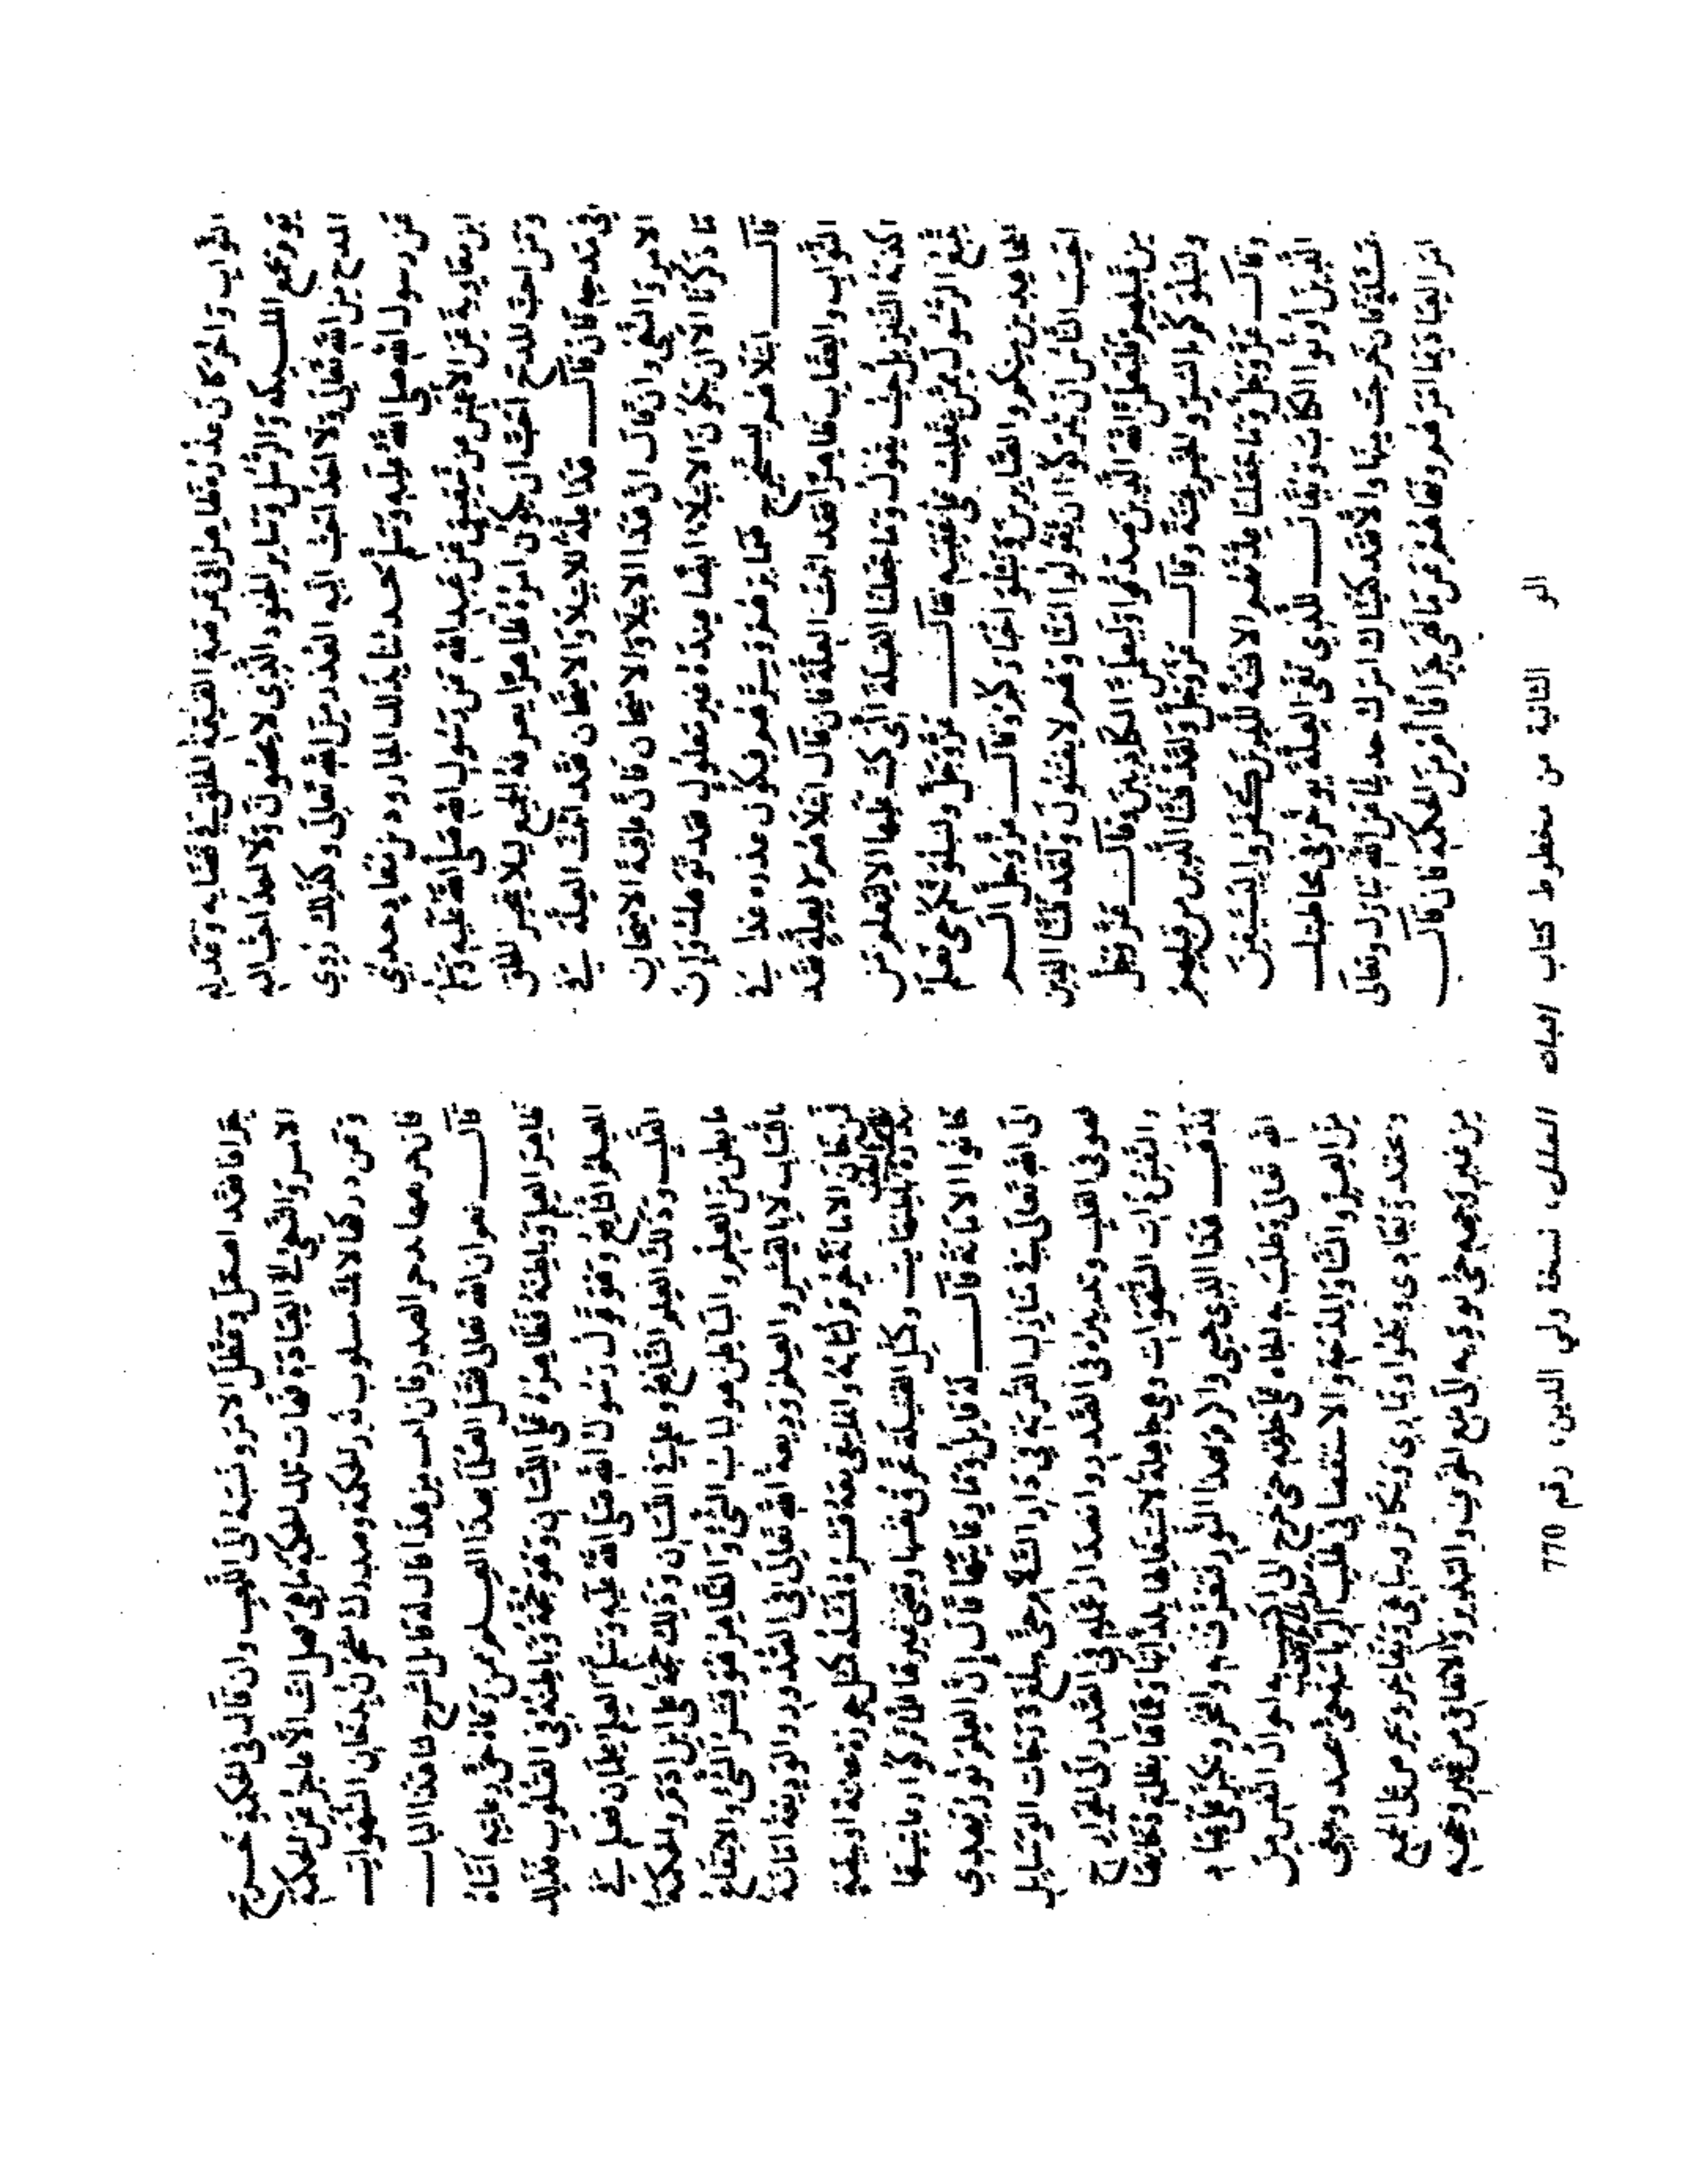 الثواب والحركان عذره ظاهرا في عرصة القيمة للخلق في قضايه وعدله
يوم يجمع الملـــيكه والرسل وساير الجنود الذي لا يحصون ولا احد احب اليه
المدح من الله تعالى ولا احد احب اليه العذر من الله تعالى وكذلك روي
عن رسول الله صلى الله عليه وسلم حدثنا بذلك الجارود بن معاذ حدثني
ابن معاوية عن الاعمش عن شقيق عن عبد الله عن رسول الله صلى الله عليه وسلم
ومن احب المدح احب ان يكون امره ظاهرا يعرفه الجميع ليلا يتحير الخلق
في مدحه فان قالـــ هذا علة للابتلا والامتحان فقد اثبت العلة في
الامر والنهي وان قال ان هذا الابتلا والامتحان فان عاقبة الامتحان
ما ذكرنا الا ان يكون الابتلا ايضا عنده غير معلول فقد توهلت وان
قالـــ ابتلاهم ليستخرج ضمايرهم وسرهم فيكون عذره غدا في
الثواب والعقاب ظاهرا فقد اثبت العلة فان قال ابتلاهم لا بعلة فقد
اكذبه التنزيل حيث يقول وما جعلنا القبلة التي كنت عليها الا لنعلم من
يتبع الرسول ممن ينقلب على عقبيه وقالـــ عز وجل ولنبلونكم حتى نعلم
المجاهدين منكم والصابرين ونبلو اخباركم وقالـــ عز وجل الـــم
احسب الناس ان يتركوا ان يقولوا امنا وهم لا يفتنون ولقد فتنا الذين
من قبلهم فليعلمن الله الذين صدقوا وليعلمن الكاذبين وقالـــ عز وجل
ولنبلونكم بالشر والخير فتنة وقالـــ عز وجل ولقد فتنا الذين من قبلهم
وقالـــ عز وجل وما جعلنا عدتهم الا فتنة للذين كفروا ليستيقن
الذين اوتوا الكتاب ويقالـــ للذي نفى العلة يوخرني مخاطبتك
مسئلة فان خرجت منها والا فقد كفيناك امرك حديثا عن الله تبارك وتعالى
امر العباد بما امرهم ونهاهم عن ما نهى جزافا ام من الحكمة فان قالـــ
جزافا فقد اهمل وعطل الامر ونسبه الى اللعب وان قال من الحكمة خـــرج
الامر والنهي الى العباد قد فهات تلك الحكمة ما هي فهل انت الا عاجز عن الحكمة
وعن دركها لانك مسلوب نور الحكمة وصدرك مخزن بدخان الشهوات
فان حرمها مدحر الصدر فان انت من هذا قال له قايل اشرح لنا هذا البابـــ
قالـــ نعم ان الله تعالى فضل العلما بهذا العـــلم من زكاه حق رعايته اتاه
ظاهر العلم وباطنه فظاهره على اللسان وهو حجة وباطنه في القلوب فذلك
العلم النافع وهو قول رسول الله صلى الله عليه وسلم العلم علمان فعلم في
القلب وذلك العلم النافع وعلم في اللسان وذلك حجة على ابن ادم والحكمة
ما بطن من العلم والباطن هو لباب الشئ والظاهر هو قشر الشئ والانتفاع
باللباب لا بالقشر والعلم وديعة الله تعالى في الصدور والوديعة امانة
فمن خان الامانة حرم لبابه وانما بقي معه قشره فمثله كمثل جوزة عفنة او بيضة
مذرة وكل القبيلة عرف نفسها وبقي غير ما تركوا رعايتها
خانوا الامانة قالـــ له قايل وما رعايتها قال ان العلم نور يهدي
الى الله تعالى في منازل القربة في دار السلم حتى يبلغ درجات الوسايل
فهو في القلب وتدبيره في الصدر واصدار عمله في الصدر الى الجوارح
والنفس ذات الشهوات وهي جاهلة لاشتغالها بلذاتها وعماها بظلمة دخانها
بذهبـــ هذا الذي حبي والا وهذا النور لتعزز به وافتخر وتكبر على عباد
الله تعالى وطلب به الجاه على خلقه حتى خرج الى به احوال النفس من
من العز والثنا والمدحة والاستقصا في طلب الرياسة حتى حسد وبغى
وحقد وعادى وعلوا وتمارى وتكابر وتباهى وتفاخر وحرص على الجمع
من غير وجهه حتى يوديه الى منع الحق والتبذير والانفاق من غير وجهه
الو الثانية من مخطوط كتاب اثبات العلل، نسخة ولي الدين، رقم 770